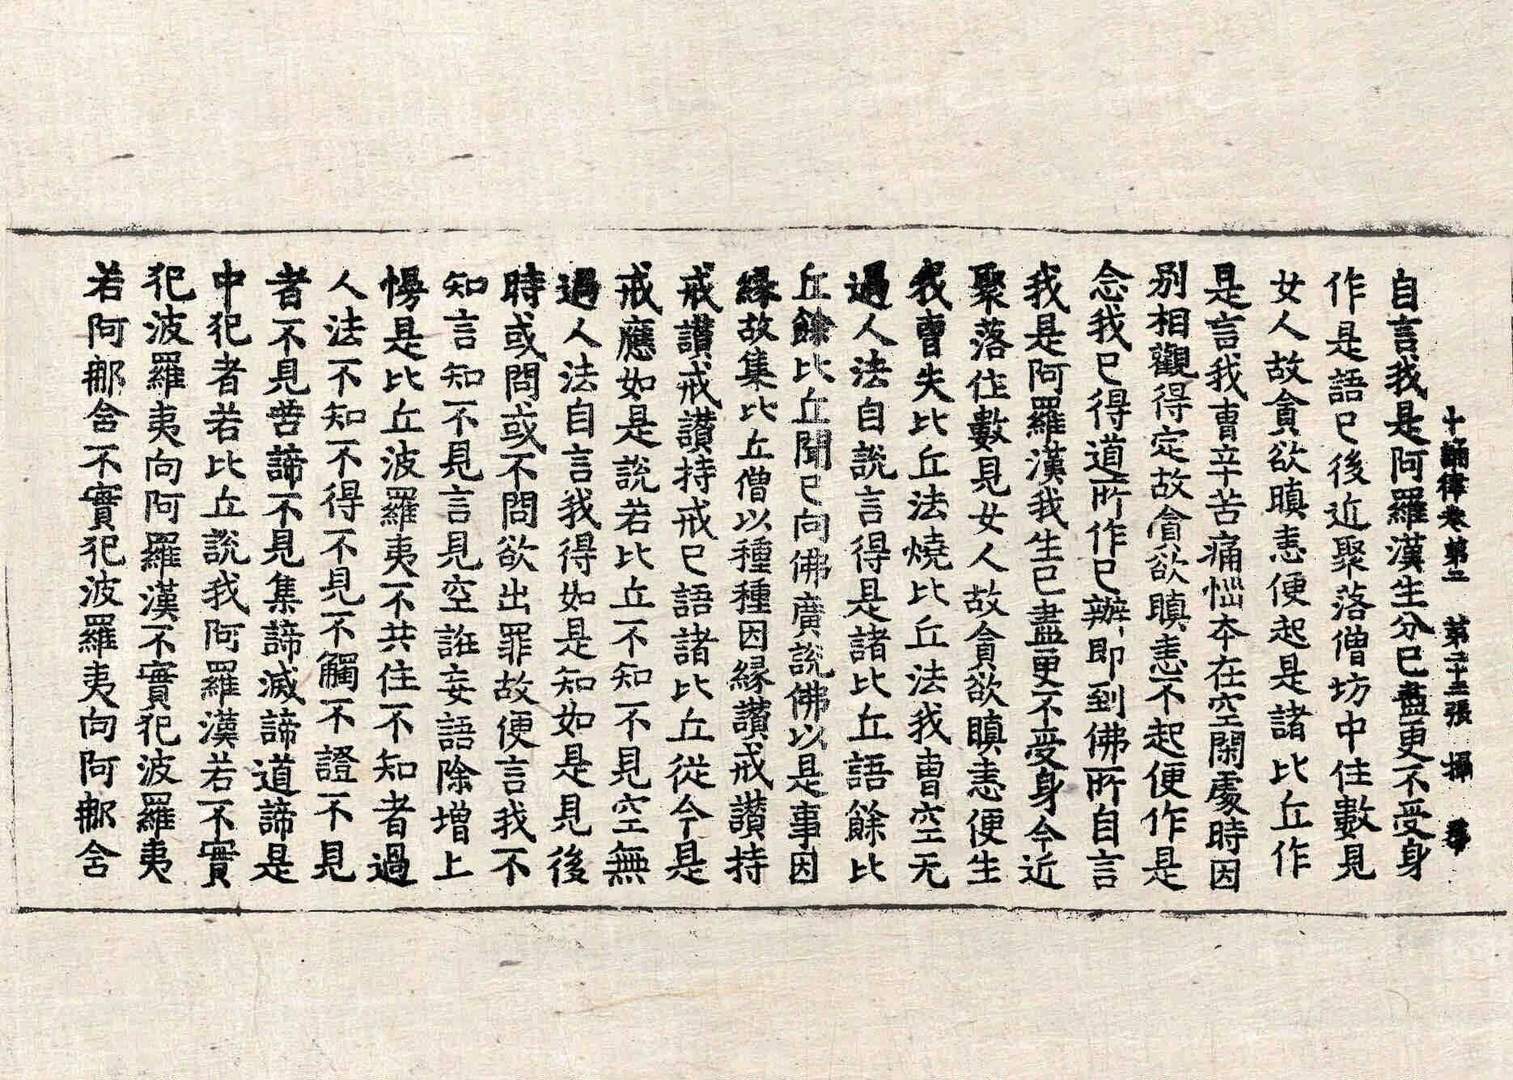 十誦律卷第二 第二十三張 攝
自言我是阿羅漢生分已盡更不受身
作是語已後近聚落僧坊中住數見
女人故貪欲瞋恚便起是諸比丘作
是言我曹辛苦痛惱本在空閑處時因
別相觀得定故貪欲瞋恚不起便作是
念我已得道所作已辦即到佛所自言
我是阿羅漢我生已盡更不受身今近
聚落住數見女人故貪欲瞋恚便生
我曹失比丘法燒比丘法我曹空无
過人法自說言得是諸比丘語餘比
丘餘比丘聞已向佛廣說佛以是事因
緣故集比丘僧以種種因緣讃戒讃持
戒讃戒讃持戒已語諸比丘從今是
戒應如是說若比丘不知不見空無
過人法自言我得如是知如是見後
時或問或不問欲出罪故便言我不
知言知不見言見空誑妄語除增上
慢是比丘波羅夷不共住不知者過
人法不知不得不見不觸不證不見
者不見苦諦不見集諦滅諦道諦是
中犯者若比丘說我阿羅漢若不實
犯波羅夷向阿羅漢不實犯波羅夷
若阿那含不實犯波羅夷向阿那含